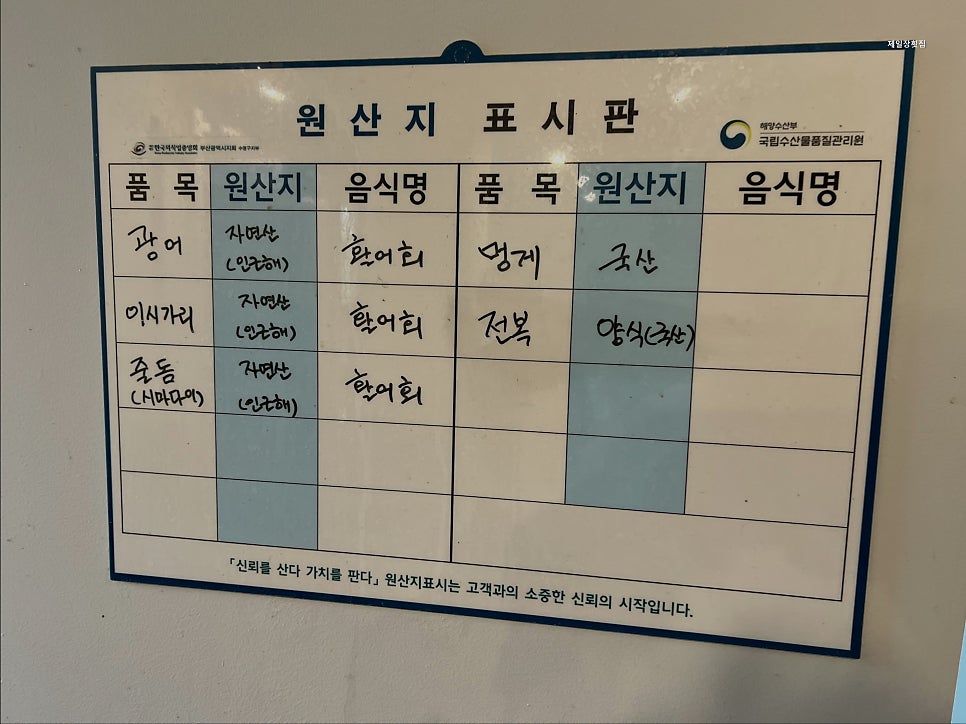 제일상횟집
원산지 표시판
한국외식업중앙회 부산광역시지회 수영구지부
해양수산부
국립수산물품질관리원
품목 원산지 음식명 품목 원산지 음식명
광어 자연산 (인근해) 활어회 멍게 국산
이시가리 자연산 (인근해) 활어회 전복 양식(국산)
줄돔 (시마다이) 자연산 (인근해) 활어회
「신뢰를 산다 가치를 판다」 원산지표시는 고객과의 소중한 신뢰의 시작입니다.